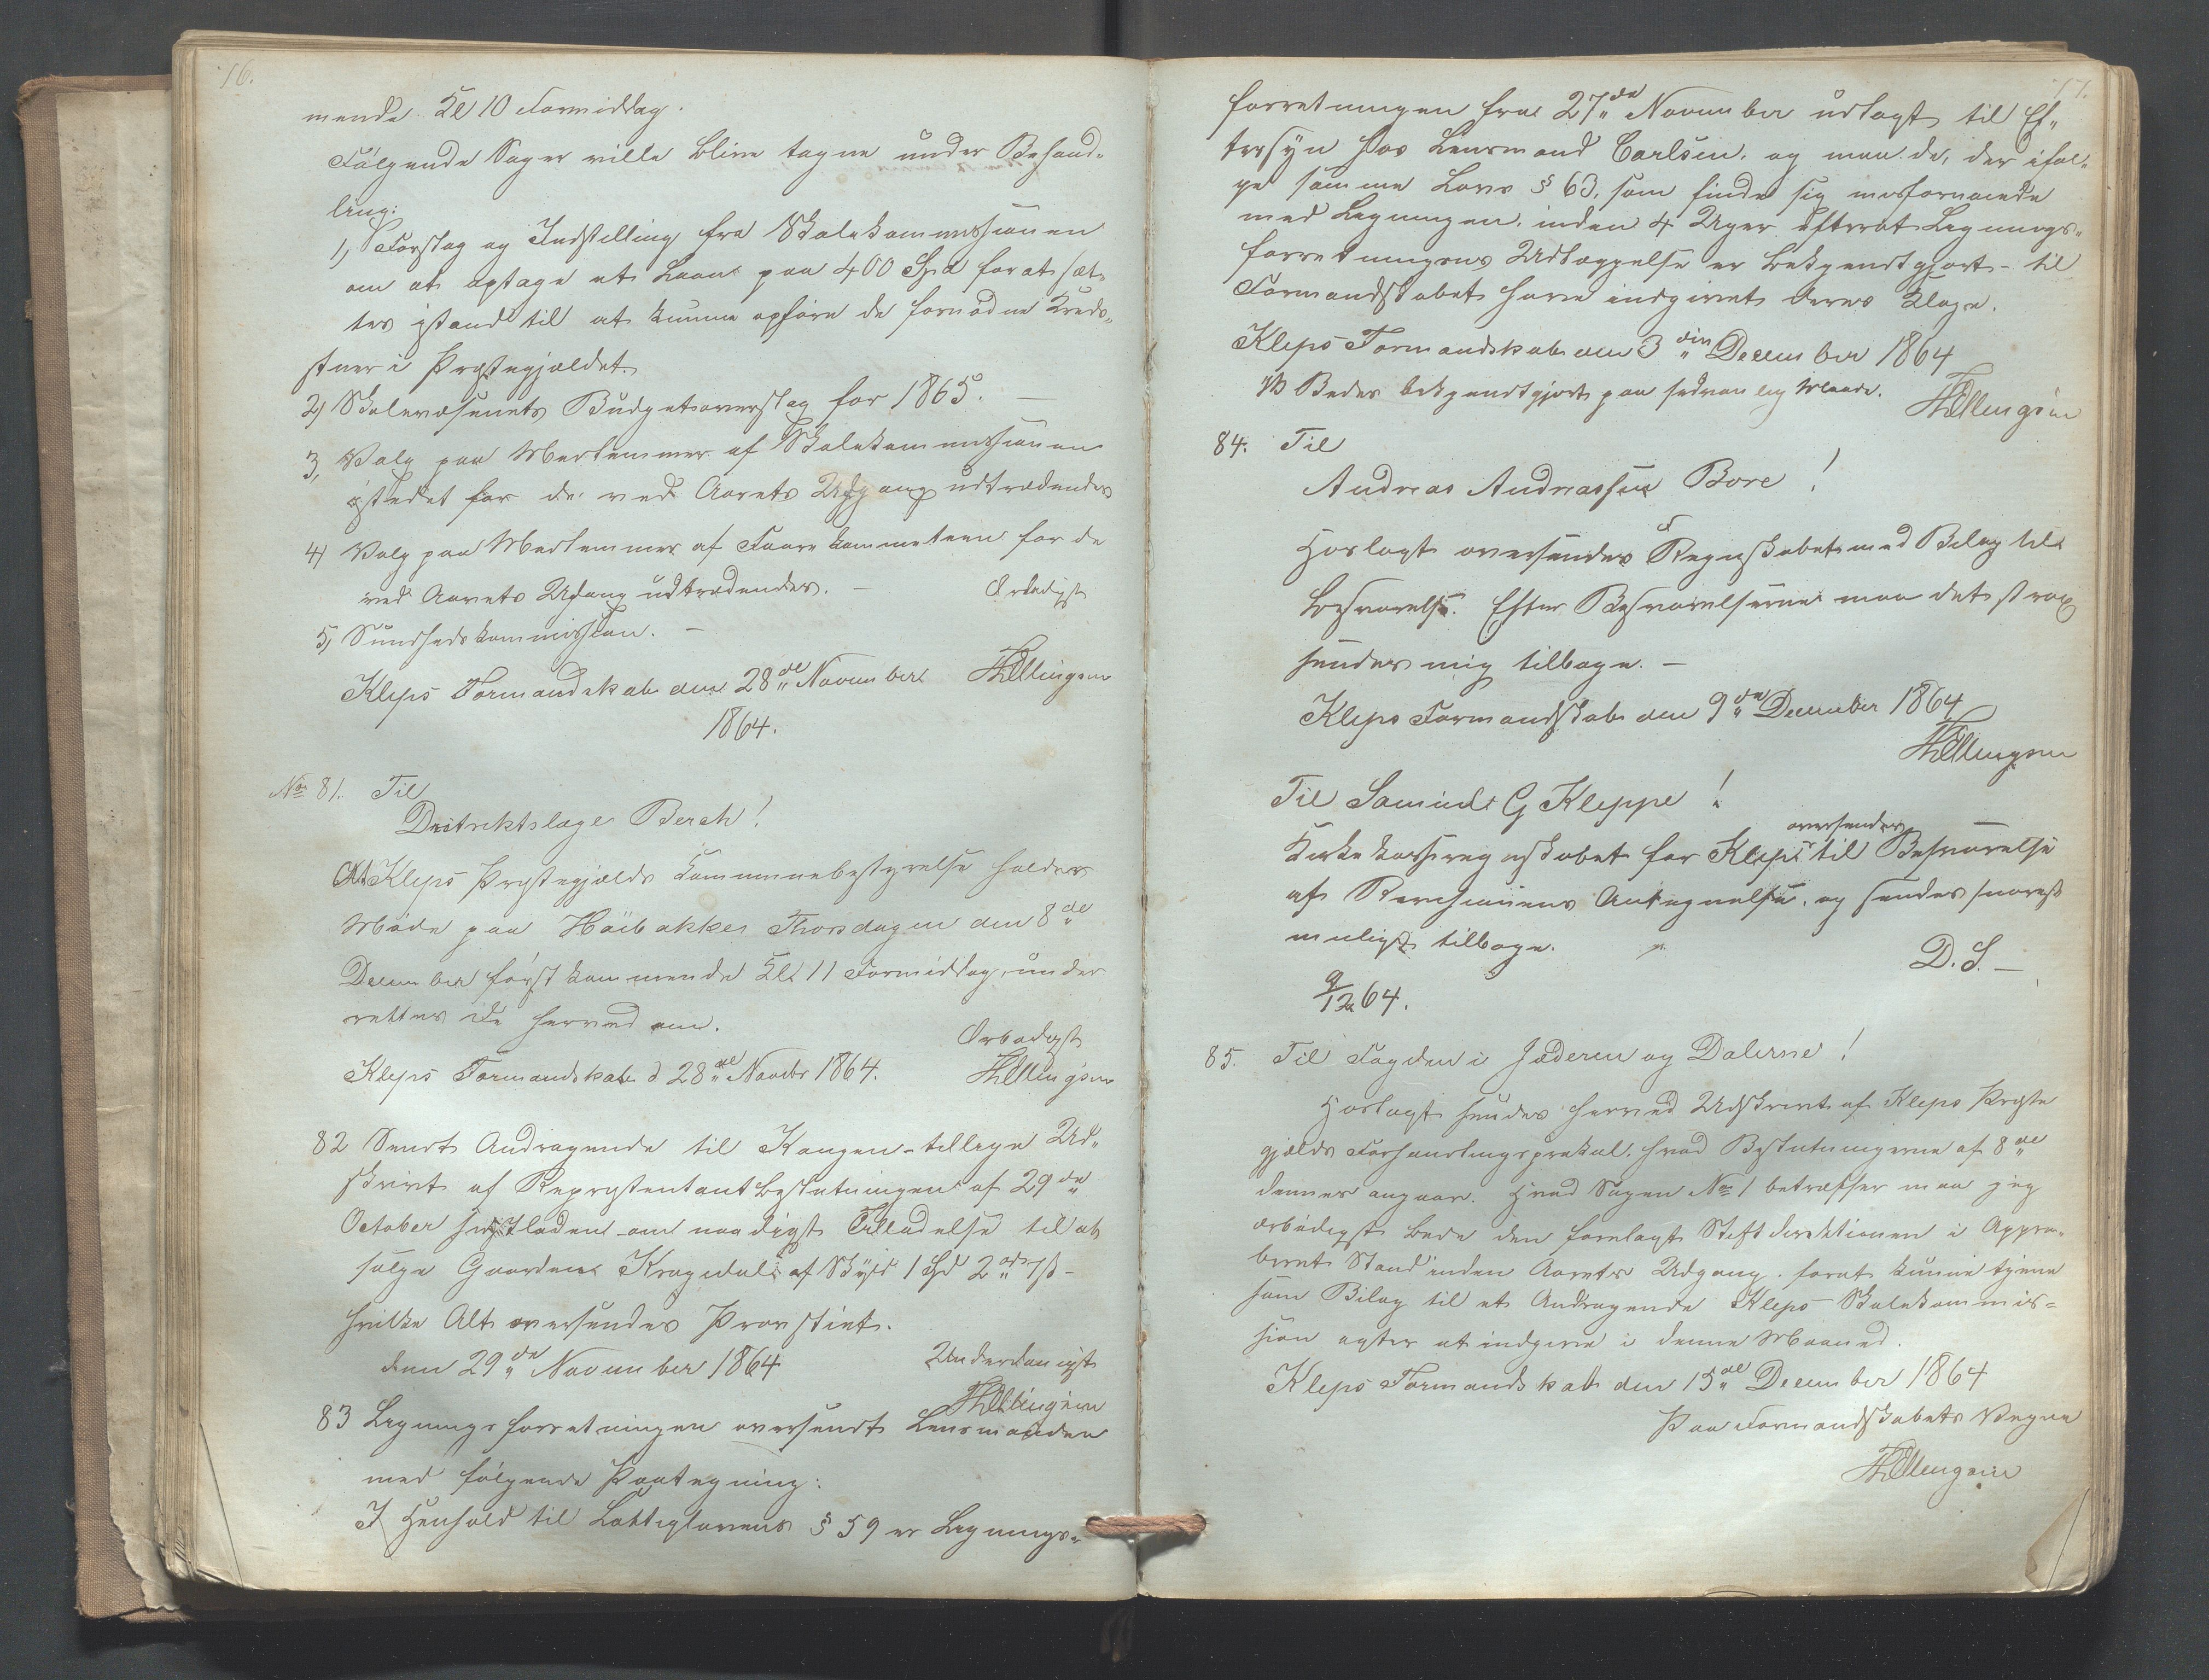 76.
mende Kl 10 Formiddag.
Følgende Sager ville blive tagne under Behand„
ling:
1, Forslag og Indstilling fra Skolekommissionen
om at optage et Laan paa 400 Spd for at sæt„
tes istand til at kunne opføre de fornødne Kreds„
stuer i Præstegjældet.
2, Skolevæsenets Budgetoverslag for 1865. —
3, Valg paa Medlemmer af Skolekommissionen
istedet for de ved Aarets Udgang udtrædende
4, Valg paa Medlemmer af Fattigkommissionen for de
ved Aarets Udgang udtrædende. — Ærbødigst
5, Sundhedskommission. —
Kleps Formandskab den 28de November ThEllingsen
1864.
No 81. Til
Distriktslæge Berch!
At Kleps Præstegjælds Kommunebestyrelse holder
Møde paa Höibakke Thorsdagen den 8de
December førstkommende Kl 11 Formiddag, under
rettes De herved om.
Ærbødigst
Kleps Formandskab d 28de Novbr 1864. ThEllingsen
82 Sendt Andragende til Kongen - tillige Ud„
skrivt af Repræsentantbeslutningen af 29de
October om naadigst Tilladelse til at
sælge Gaarden Krogedal af Skyld 1 Spd 2 ort 7 s -
hvilke Alt oversendes Provstiet.
den 29de November 1864 Underdanigst
ThEllingsen
83 Ligningsforretningen oversendt Lensmanden
med følgende Paategning:
I Henhold til Fattiglovens § 59 er Lignings„
77.
forretningen fra 27de November udlagt til Ef„
tersyn hos Lensmand Carlsen, og maa de, der iføl„
ge samme Lovs § 63, som finde sig misfornøiede
med Ligningen, inden 4 Uger efterat Lignings„
forretningens Udlæggelse er bekjendtgjort - til
Formandskabet have indgivet deres Klage.
Kleps Formandskab den 3die December 1864
NB Bedes bekjendtgjort paa sædvanlig Maade. ThEllingsen
84. Til
Andreas Andreassen Bore!
Hoslagt oversendes Regnskabet med Bilag til
Besvarelse. Efter Besvarelserne maa det strax
sendes mig tilbage. —
Kleps Formandskab den 9de December 1864
ThEllingsen
Til Samuel G Kleppe!
oversendes
Kirkekasseregnskabet for Klep til Besvarelse
af Revisionens Antegnelse, og sendes snarest
muligst tilbage.
D.S. —
9/12 64.
85. Til Fogden i Jæderen og Dalerne!
Hoslagt sendes herved Udskrivt af Kleps Præste
gjælds Forhandlingsprotokol, hvad Beslutningerne af 8de
dennes angaar. Hvad Sagen No 1 betræffer maa jeg
ærbødigst bede den forelagt Stiftdirektionen i Appro„
beret Stand inden Aarets Udgang, forat kunne tjene
som Bilag til et Andragende Kleps Skolekommis=
sion agter at indgive i denne Maaned.
Kleps Formandskab den 15de December 1864
Paa Formandskabets Vegne
ThEllingsen